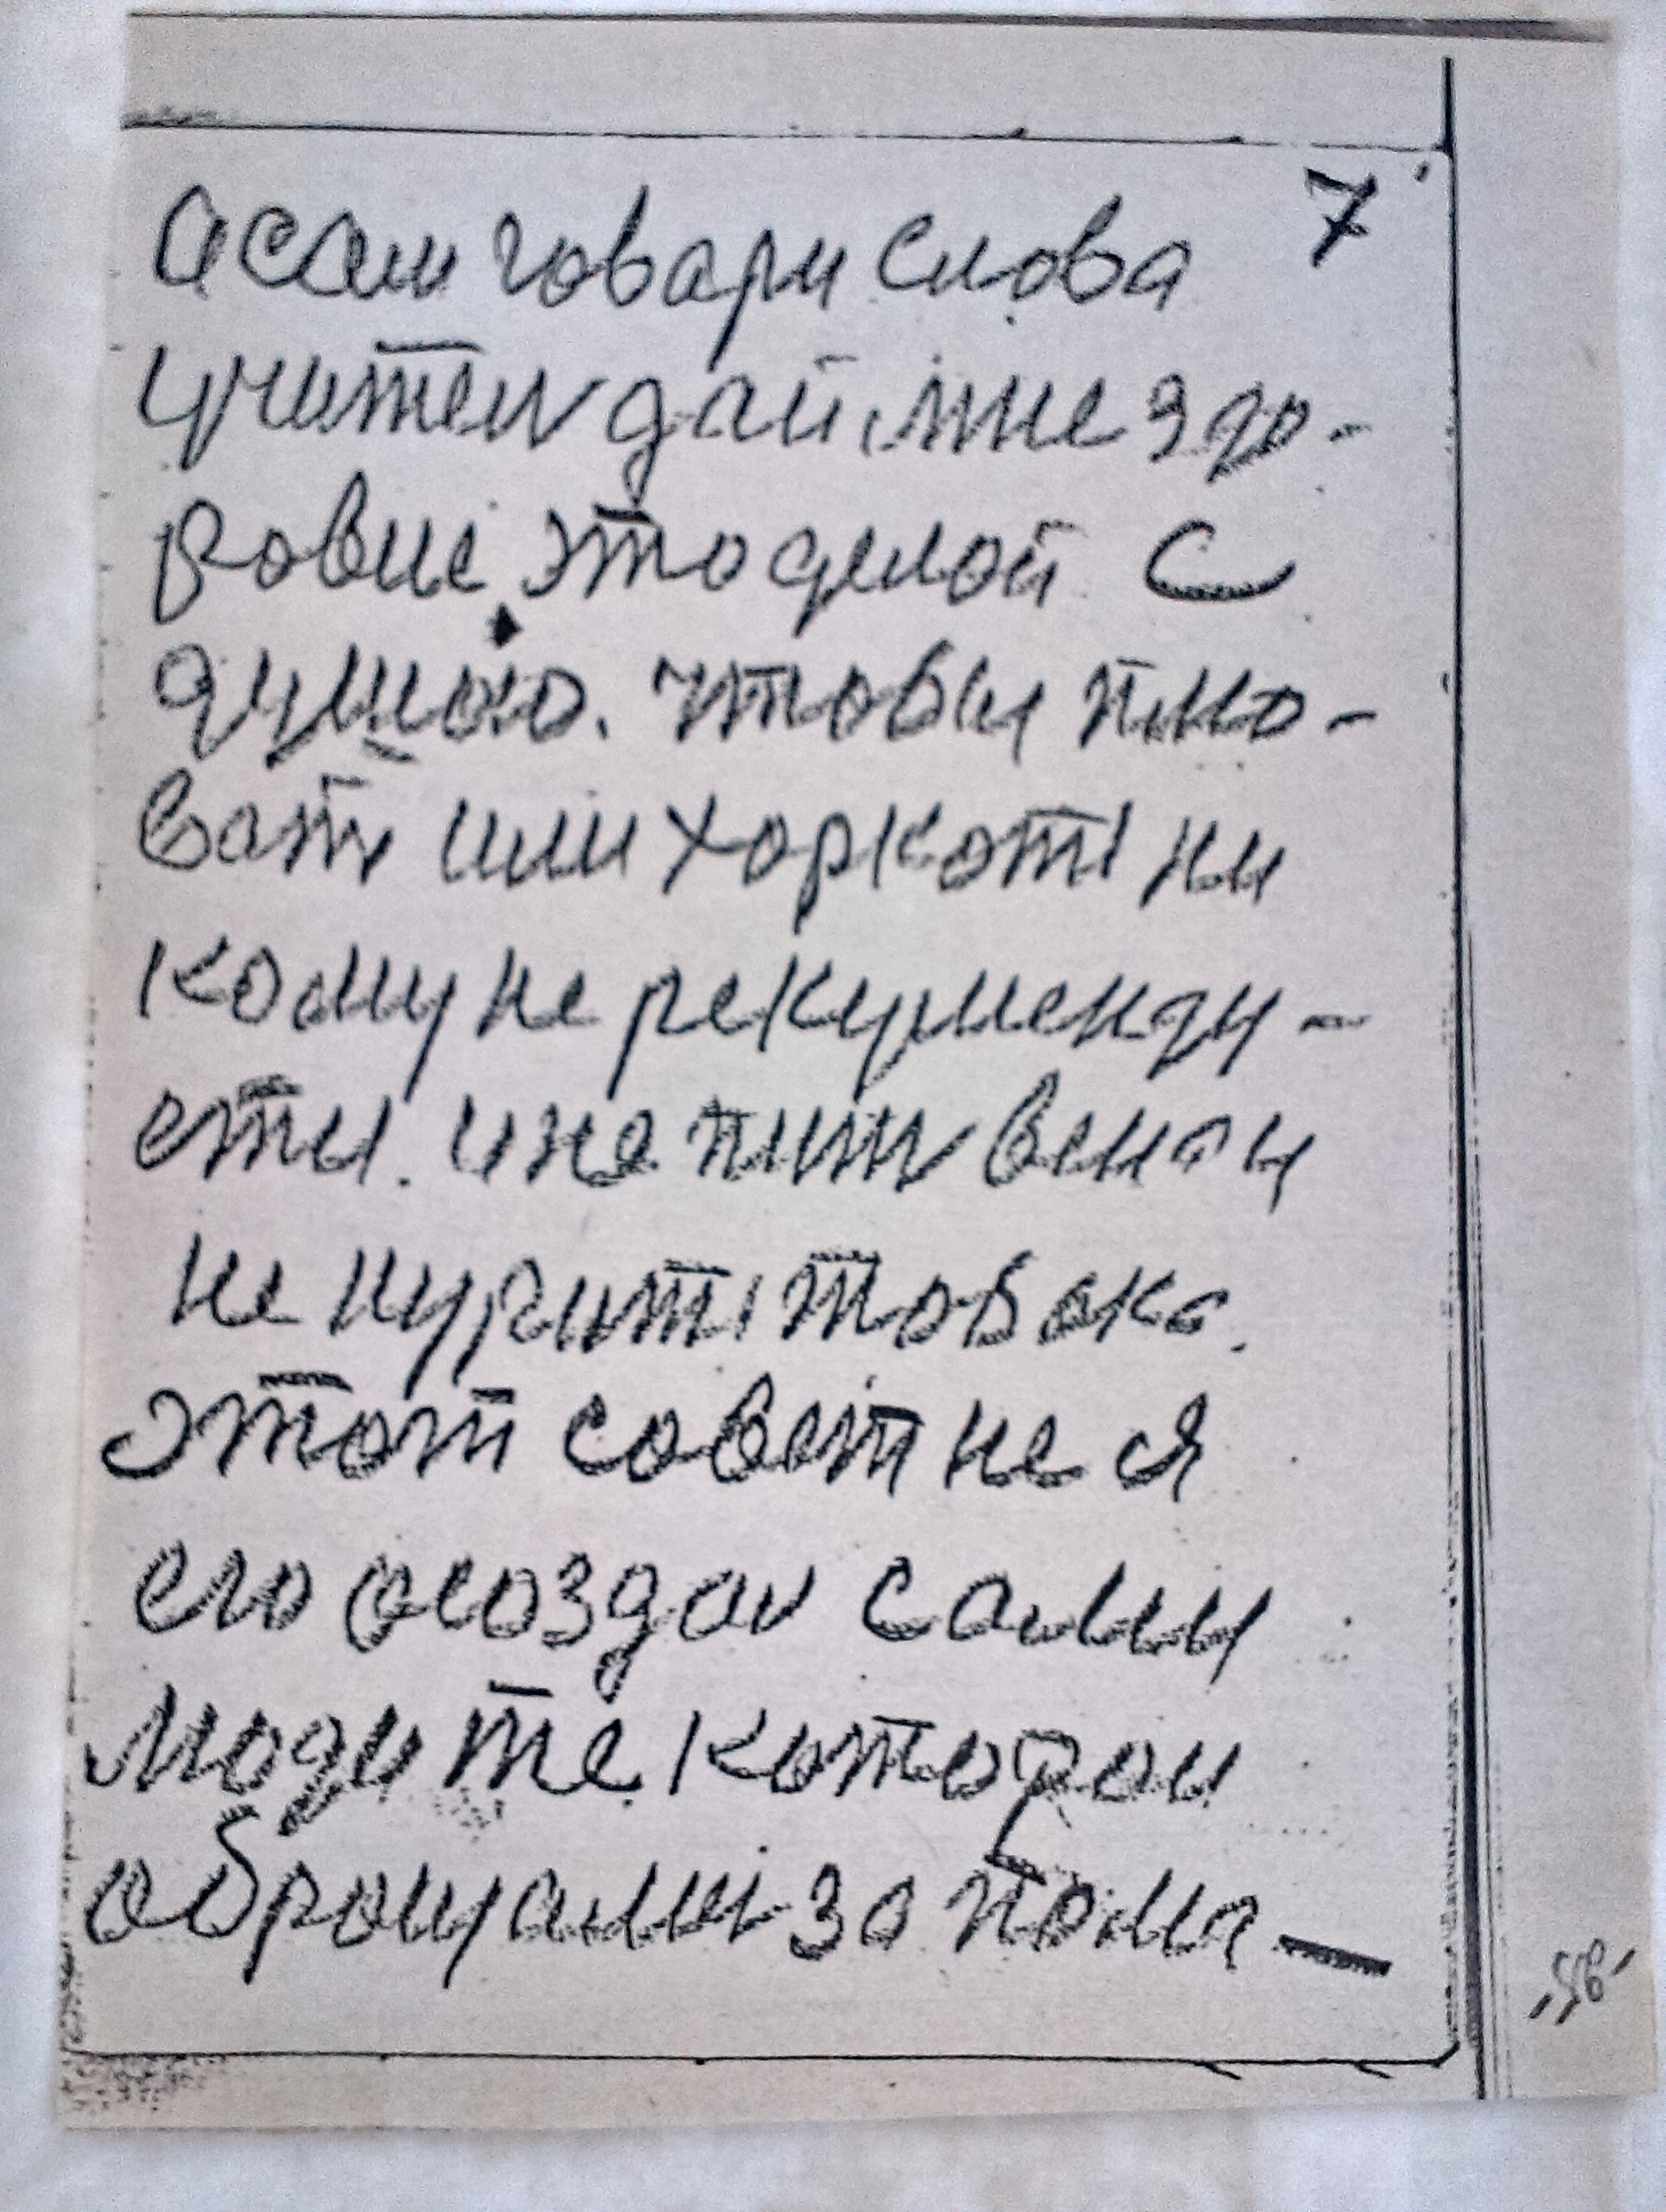 7
а сам говари слова
учител дай мне здо-
ровие это делой с
думою. чтобы плю-
ват или хоркоти ни
кому не рекуменду-
ети. и не пит вена и
не курити тобако.
этот совет не я
его осоздал самии
люди те которои
оброщалис за пома-